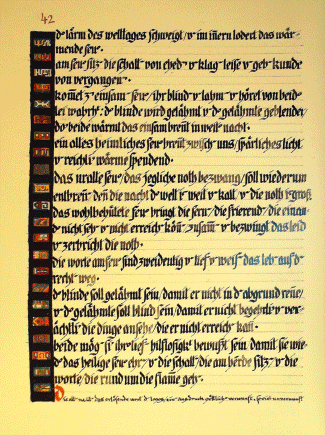 42
d' lärm des welttages schweigt / v' im innern lodert das wär-
mende feur.
am feur sitz' die schatt' von ehed' v' klag' leise v' geb' kunde
von vergangen'.
kom̄et z' einsam' feur / ihr blind' v' lahm' v' höret von beid-
lei wahrh': d' blinde wird gelähmt v' d' gelähmte geblendet
do' beide wärmt das einsam breit in weit' nacht.
ein altes heimliches feur brent zwisch' uns / spärliches licht
v' reichli' wärme spendend.
das uralte feur / das jegliche noth bezwang / soll wiederum
entbren̄' den̄ die nacht d' welt i' weit v' kalt / v' die noth i' groß
das wohlbehütete feur bringt die fern' / die frierend' / die einan-
d' nicht seh' v' nicht erreich' kön̄' / zusam̄' v' bezwingt das leid
v' zerbricht die noth.
die worte am feur sind zweideutig v' tief v' weis' das leb' auf d'
recht' weg.
d' blinde soll gelähmt sein / damit er nicht in d' abgrund ren̄e /
v' d' gelähmte soll blind sein / damit er nicht begehrli' v' ver-
ächtli' die dinge ansehe / die er nicht erreich' kan̄.
beide mög' si' ihr' tief' hilflosigk' bewußt sein damit sie wie-
d' das heilige feur ehr' v' die schatt' / die am herde sitz' v' die
worte / die rund um die flam̄e geh'.